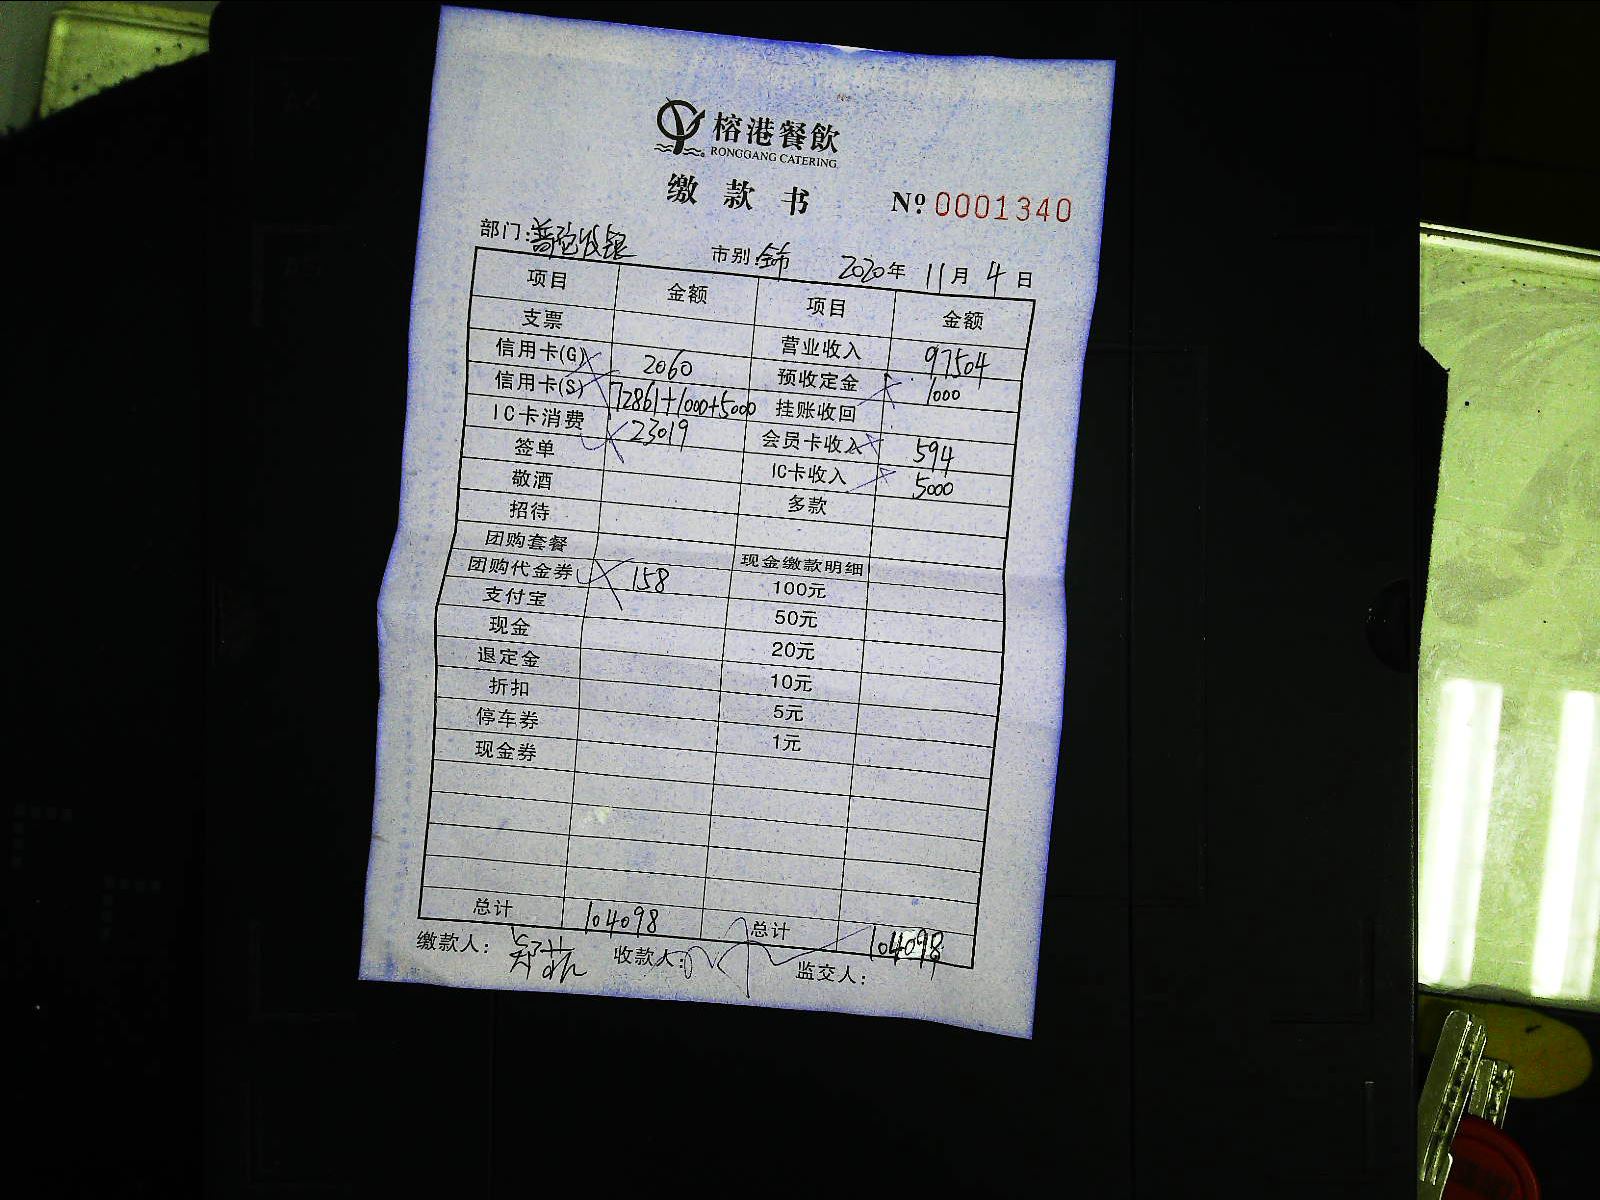 榕港餐飲
RONGGANG CATERING
缴款书 Nº 0001340
部门:普陀收银 市别:全市 2020年 11月 4日
项目 金额 项目 金额
支票 营业收入 97504
信用卡(G) 2060 预收定金 1000
信用卡(S) 72861+1000+5000 挂账收回
IC卡消费 23019 会员卡收入 594
签单 IC卡收入 5000
敬酒 多款
招待
团购套餐 现金缴款明细
团购代金券 158 100元
支付宝 50元
现金 20元
退定金 10元
折扣 5元
停车券 1元
现金券
总计 104098 总计 104098
缴款人: 收款人: 监交人: